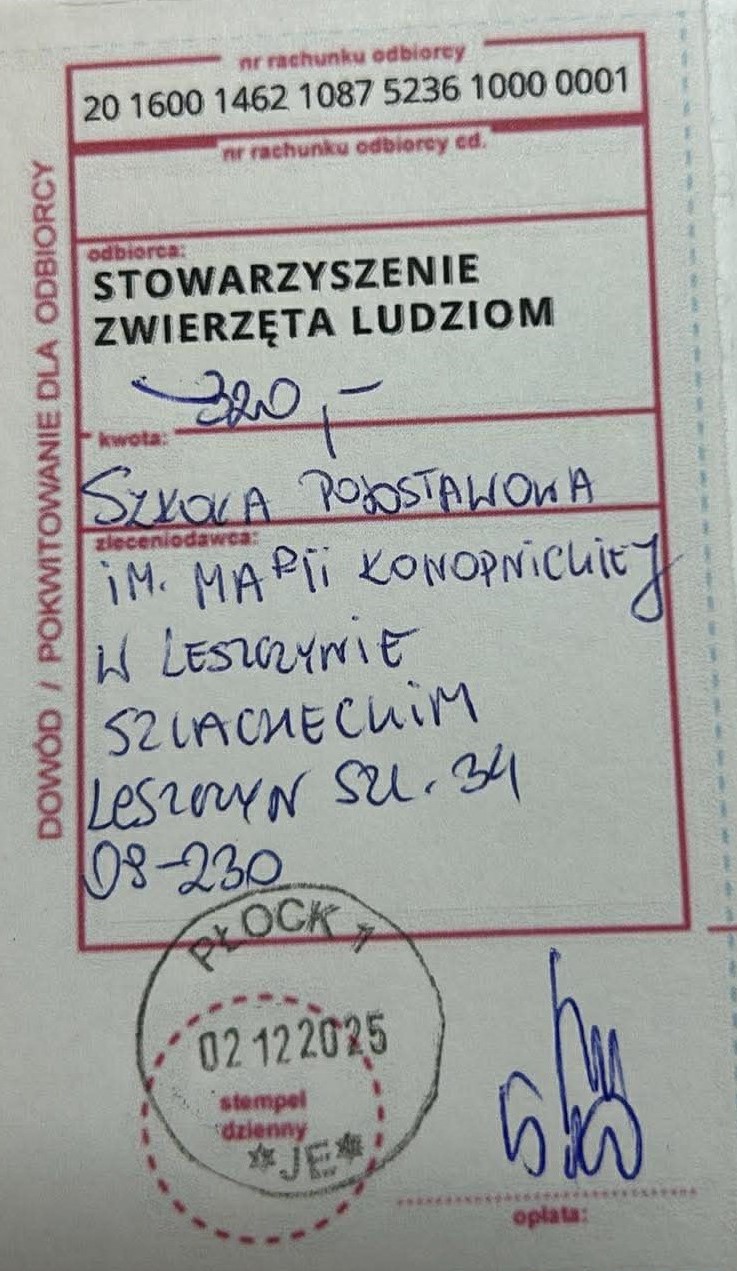 nr rachunku odbiorcy
20 1600 1462 1087 5236 1000 0001
nr rachunku odbiorcy cd.
odbiorca:
STOWARZYSZENIE
ZWIERZĘTA LUDZIOM
320,-
kwota:
SZKOŁA PODSTAWOWA
zleceniodawca:
IM. MARII KONOPNICKIEJ
W LESZCZYNIE
SZLACHECKIM
LESZCZYN SZL. 34
09-230
DOWÓD / POKWITOWANIE DLA ODBIORCY
PŁOCK 1
02 12 2025
stempel
dzienny
*JE*
opłata: